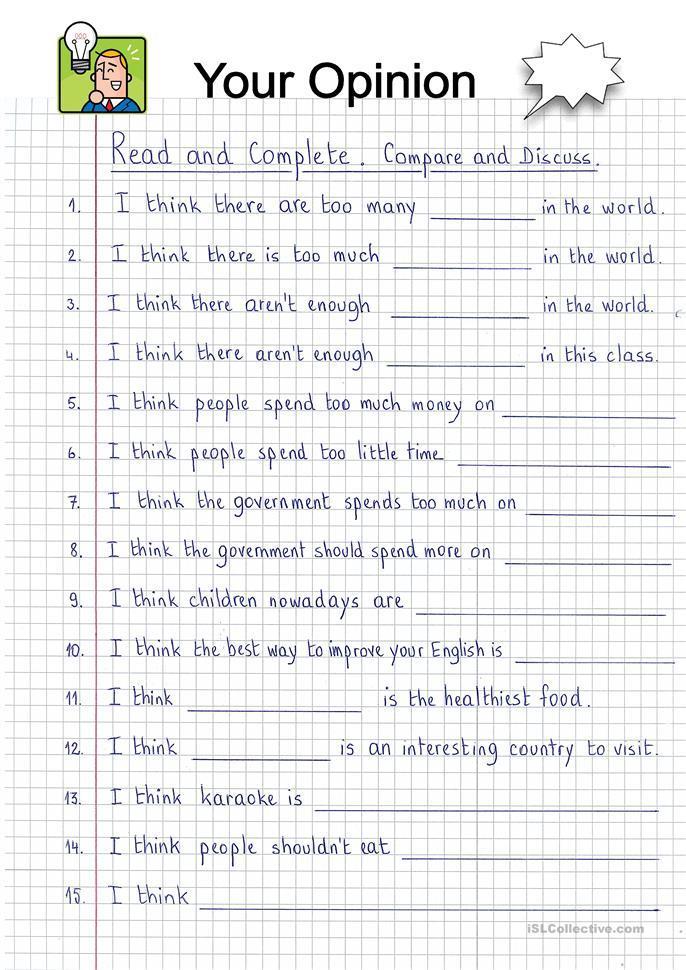 Your Opinion
Read and Complete. Compare and Discuss.
1. I think there are too many __________ in the world.
2. I think there is too much __________ in the world.
3. I think there aren't enough __________ in the world.
4. I think there aren't enough __________ in this class.
5. I think people spend too much money on __________
6. I think people spend too little time __________
7. I think the government spends too much on __________
8. I think the government should spend more on __________
9. I think children nowadays are __________
10. I think the best way to improve your English is __________
11. I think __________ is the healthiest food.
12. I think __________ is an interesting country to visit.
13. I think karaoke is __________
14. I think people shouldn't eat __________
15. I think __________
iSLCollective.com